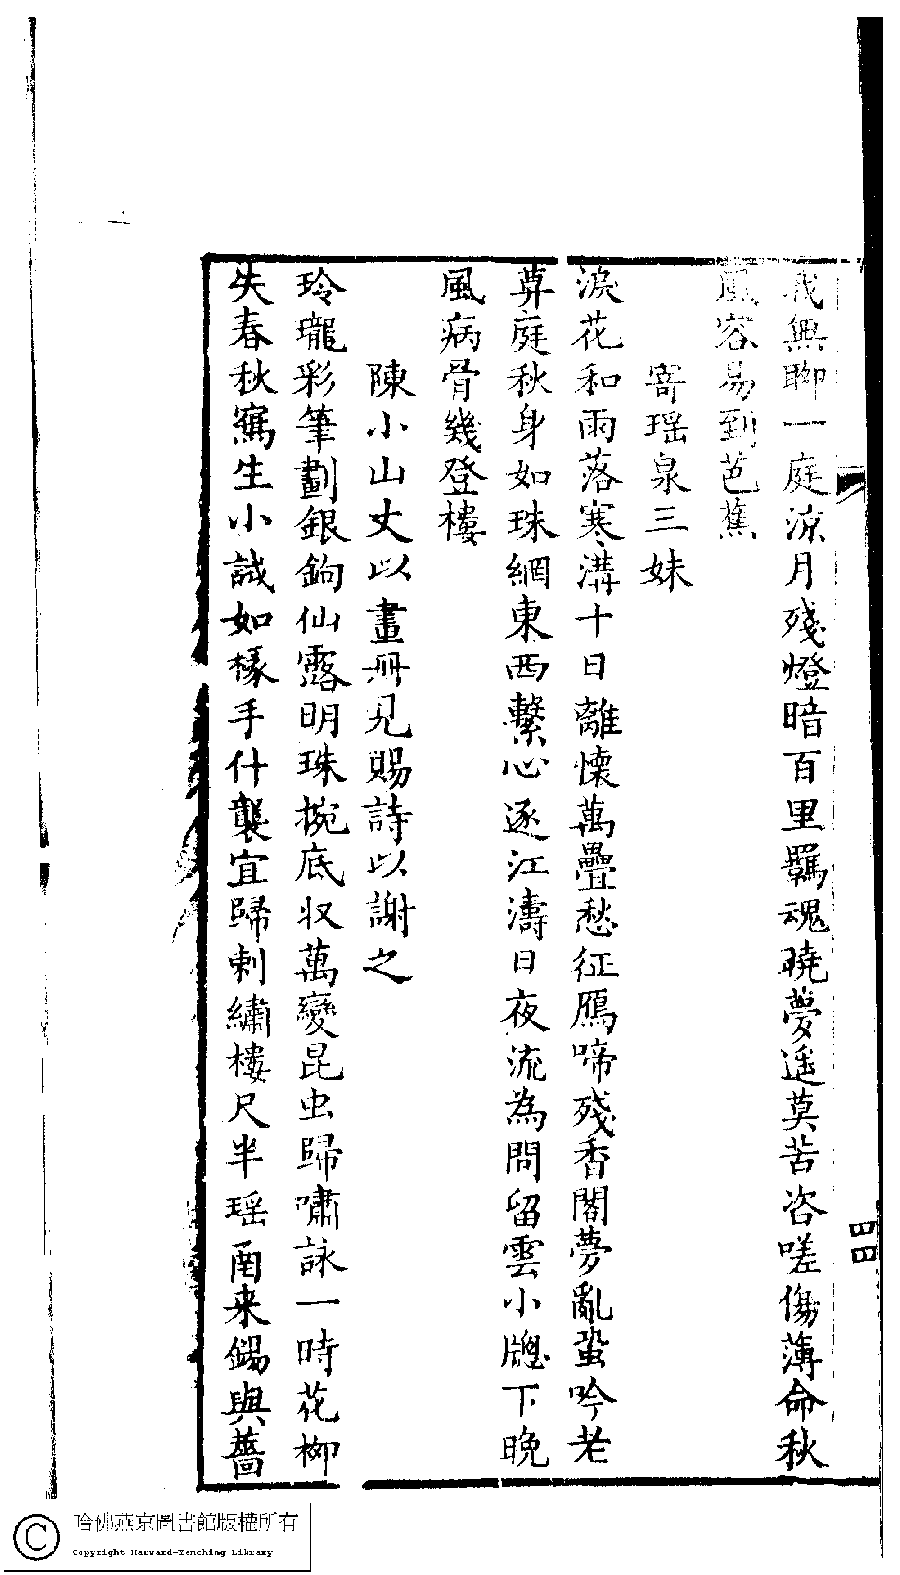 我無聊一庭涼月殘燈暗百里羈魂曉夢遥莫苦咨嗟傷薄命秋
風容易到芭蕉
寄瑶泉三妹
淚花和雨落寒溝十日離懷萬疊愁征鴈啼殘香閣夢亂蛩吟老
莽庭秋身如珠網東西繫心逐江濤日夜流為問留雲小牕下晚
風病骨幾登樓
陳小山丈以畫册見賜詩以謝之
玲瓏彩筆劃銀鉤仙露明珠捥底収萬變昆虫歸嘯詠一時花柳
失春秋寫生小誠如椽手什襲宜歸刺繡樓尺半瑶函来錫與薔
四四
哈佛燕京圖書館版權所有
Copyright Harvard-Yenching Library